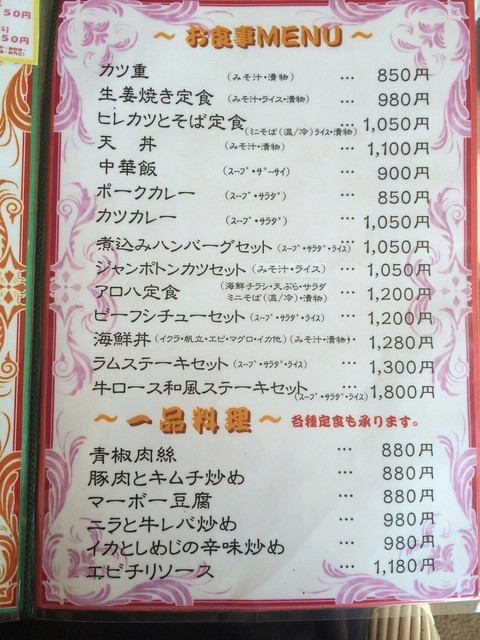 50円
り
50円
~ お食事MENU ~
カツ重 (みそ汁・漬物) … 850円
生姜焼き定食 (みそ汁・ライス・漬物) … 980円
ヒレカツとそば定食 (ミニそば(温/冷)ライス・漬物) … 1,050円
天 丼 (みそ汁・漬物) … 1,100円
中華飯 (スープ・ザーサイ) … 900円
ポークカレー (スープ・サラダ) … 850円
カツカレー (スープ・サラダ) … 1,050円
煮込みハンバーグセット (スープ・サラダ・ライス) … 1,050円
ジャンボトンカツセット (みそ汁・ライス) … 1,050円
アロハ定食 (海鮮チラシ・天ぷら・サラダ … 1,200円
ミニそば(温/冷)・漬物)
ビーフシチューセット (スープ・サラダ・ライス) … 1,200円
海鮮丼 (イクラ・帆立・エビ・マグロ・イカ他)(みそ汁・漬物) … 1,280円
ラムステーキセット (スープ・サラダ・ライス) … 1,300円
牛ロース和風ステーキセット (スープ・サラダ・ライス) … 1,800円
~ 一品料理 ~ 各種定食も承ります。
青椒肉絲 … 880円
豚肉とキムチ炒め … 880円
マーボー豆腐 … 880円
ニラと牛レバ炒め … 980円
イカとしめじの辛味炒め … 980円
エビチリソース … 1,180円